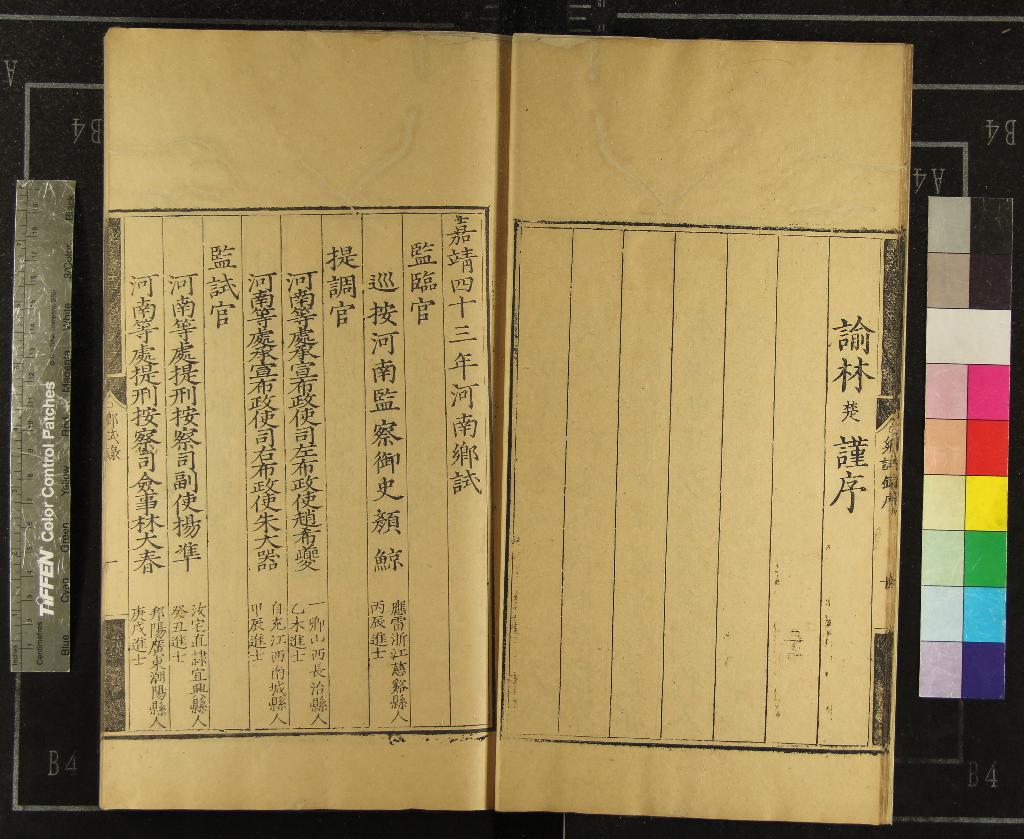 諭林楚謹序
嘉靖四十三年河南鄉試
監臨官
巡按河南監察御史顏鯨
應雷浙江慈谿縣人
丙辰進士
提調官
河南等處承宣布政使司左布政使趙希夔
一卿山西長治縣人
乙未進士
河南等處承宣布政使司右布政使朱大器
自充江西南城縣人
甲辰進士
監試官
河南等處提刑按察司副使楊準
汝宅直隷宜興縣人
癸丑進士
河南等處提刑按察司僉事林大春
邦陽廣東潮陽縣人
庚戌進士
一
TIFFEN Color Control Patches
Centimetres
Inches
Blue
Cyan
Green
Yellow
Red
Magenta
White
3/Color
Black
A4
B4
B4
B4
B4
A